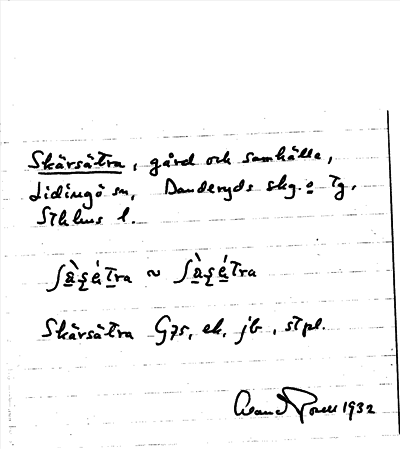 Skärsätra, gård och samhälle,
Lidingö sn, Danderyds skg. o Tg,
Sthlms l.
ʃä̀ʂä́tra ~ ʃä̀ʂä́tra
Skärsätra G75, ek, jb, stpl.
1932